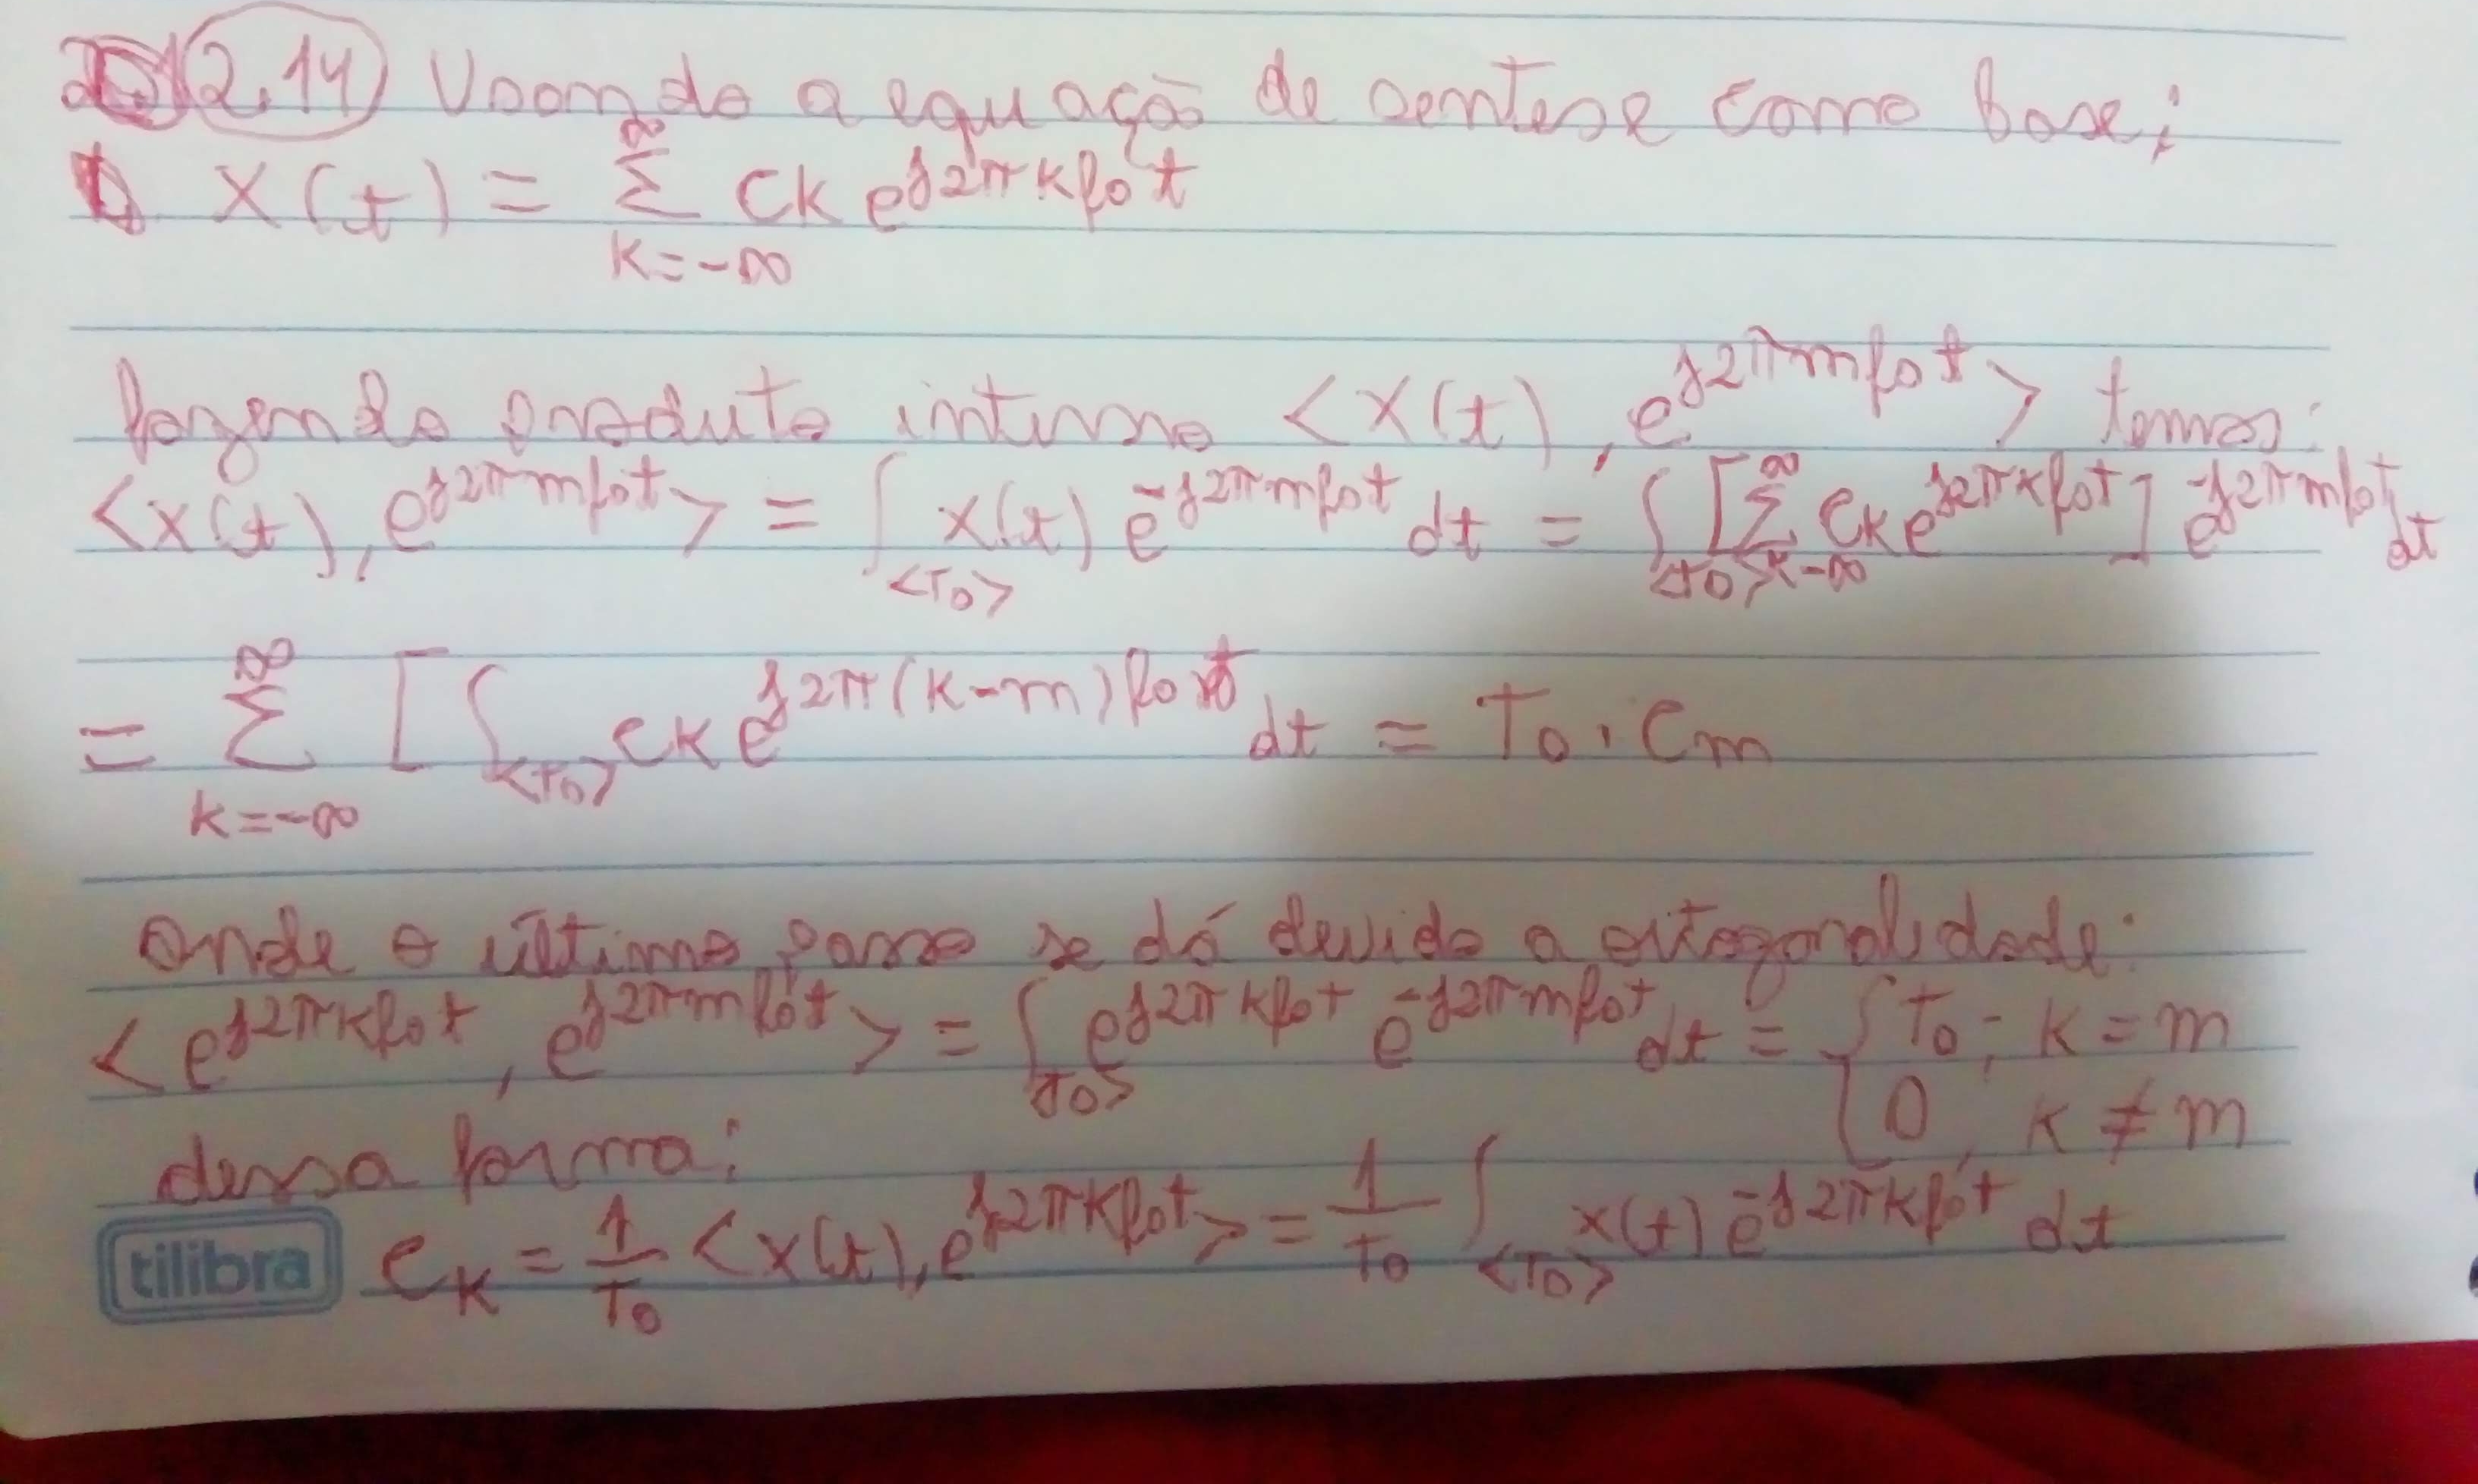 2.14) Usando a equação de sentese como base;
x(t) = ∑_{k=-∞}^{∞} ck e^{j2πkf0t}
fazendo produto interno <x(t), e^{j2πmf0t}> temos:
<x(t), e^{j2πmf0t}> = ∫_{<T0>} x(t) e^{-j2πmf0t} dt = ∫_{<T0>} [∑_{k-∞}^{∞} ck e^{j2πkf0t}] e^{-j2πmf0t} dt
= ∑_{k=-∞}^{∞} [∫_{<T0>} ck e^{j2π(k-m)f0t} dt = T0 . cm
onde o último passo se dá devido a ortogonalidade:
<e^{j2πkf0t}, e^{j2πmf0t}> = ∫_{<T0>} e^{j2πkf0t} e^{-j2πmf0t} dt = { T0; k = m
0, k ≠ m
dessa forma:
ck = 1/T0 <x(t), e^{j2πkf0t}> = 1/T0 ∫_{<T0>} x(t) e^{-j2πkf0t} dt
tilibra